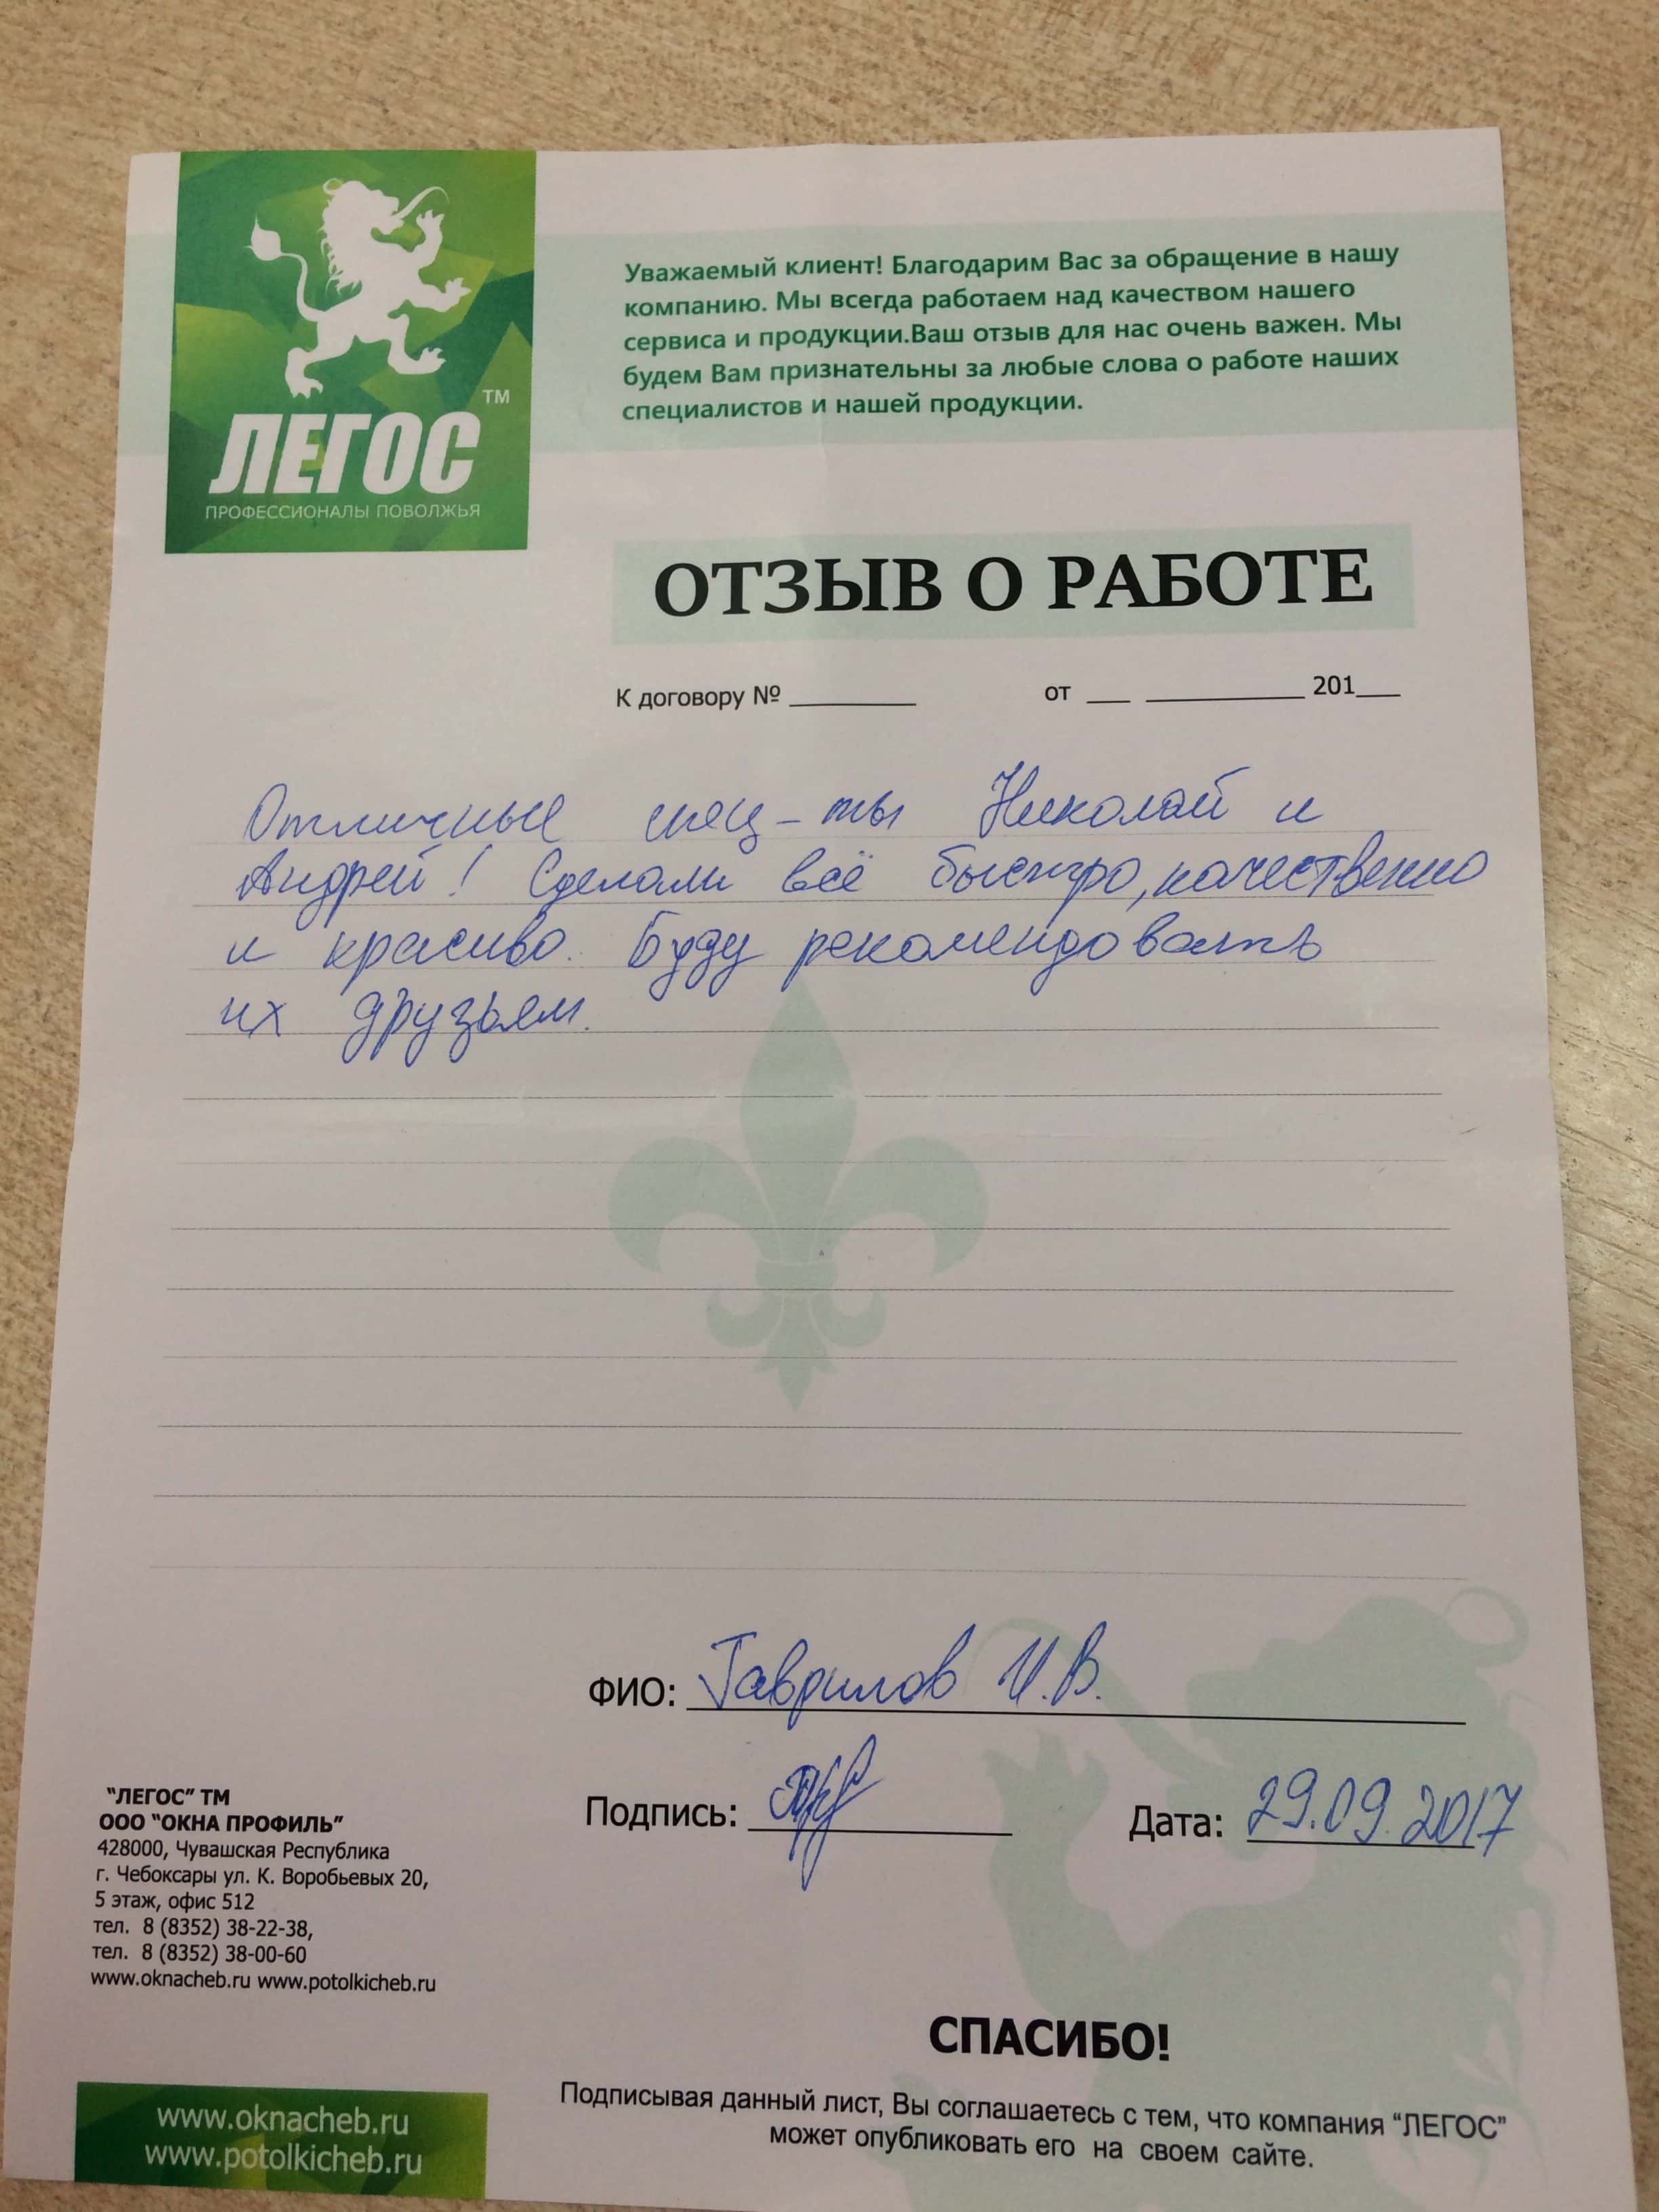 ЛЕГОС TM
ПРОФЕССИОНАЛЫ ПОВОЛЖЬЯ
Уважаемый клиент! Благодарим Вас за обращение в нашу
компанию. Мы всегда работаем над качеством нашего
сервиса и продукции.Ваш отзыв для нас очень важен. Мы
будем Вам признательны за любые слова о работе наших
специалистов и нашей продукции.
ОТЗЫВ О РАБОТЕ
К договору № ________ от __ ________ 201__
Отличные спец-ты Николай и
Андрей! Сделали всё быстро, качественно
и красиво. Буду рекомендовать
их друзьям.
ФИО: Гаврилов И.В.
Подпись: Дата: 29.09.2017
"ЛЕГОС" ТМ
ООО "ОКНА ПРОФИЛЬ"
428000, Чувашская Республика
г. Чебоксары ул. К. Воробьевых 20,
5 этаж, офис 512
тел. 8 (8352) 38-22-38,
тел. 8 (8352) 38-00-60
www.oknacheb.ru www.potolkicheb.ru
СПАСИБО!
Подписывая данный лист, Вы соглашаетесь с тем, что компания "ЛЕГОС"
может опубликовать его на своем сайте.
www.oknacheb.ru
www.potolkicheb.ru